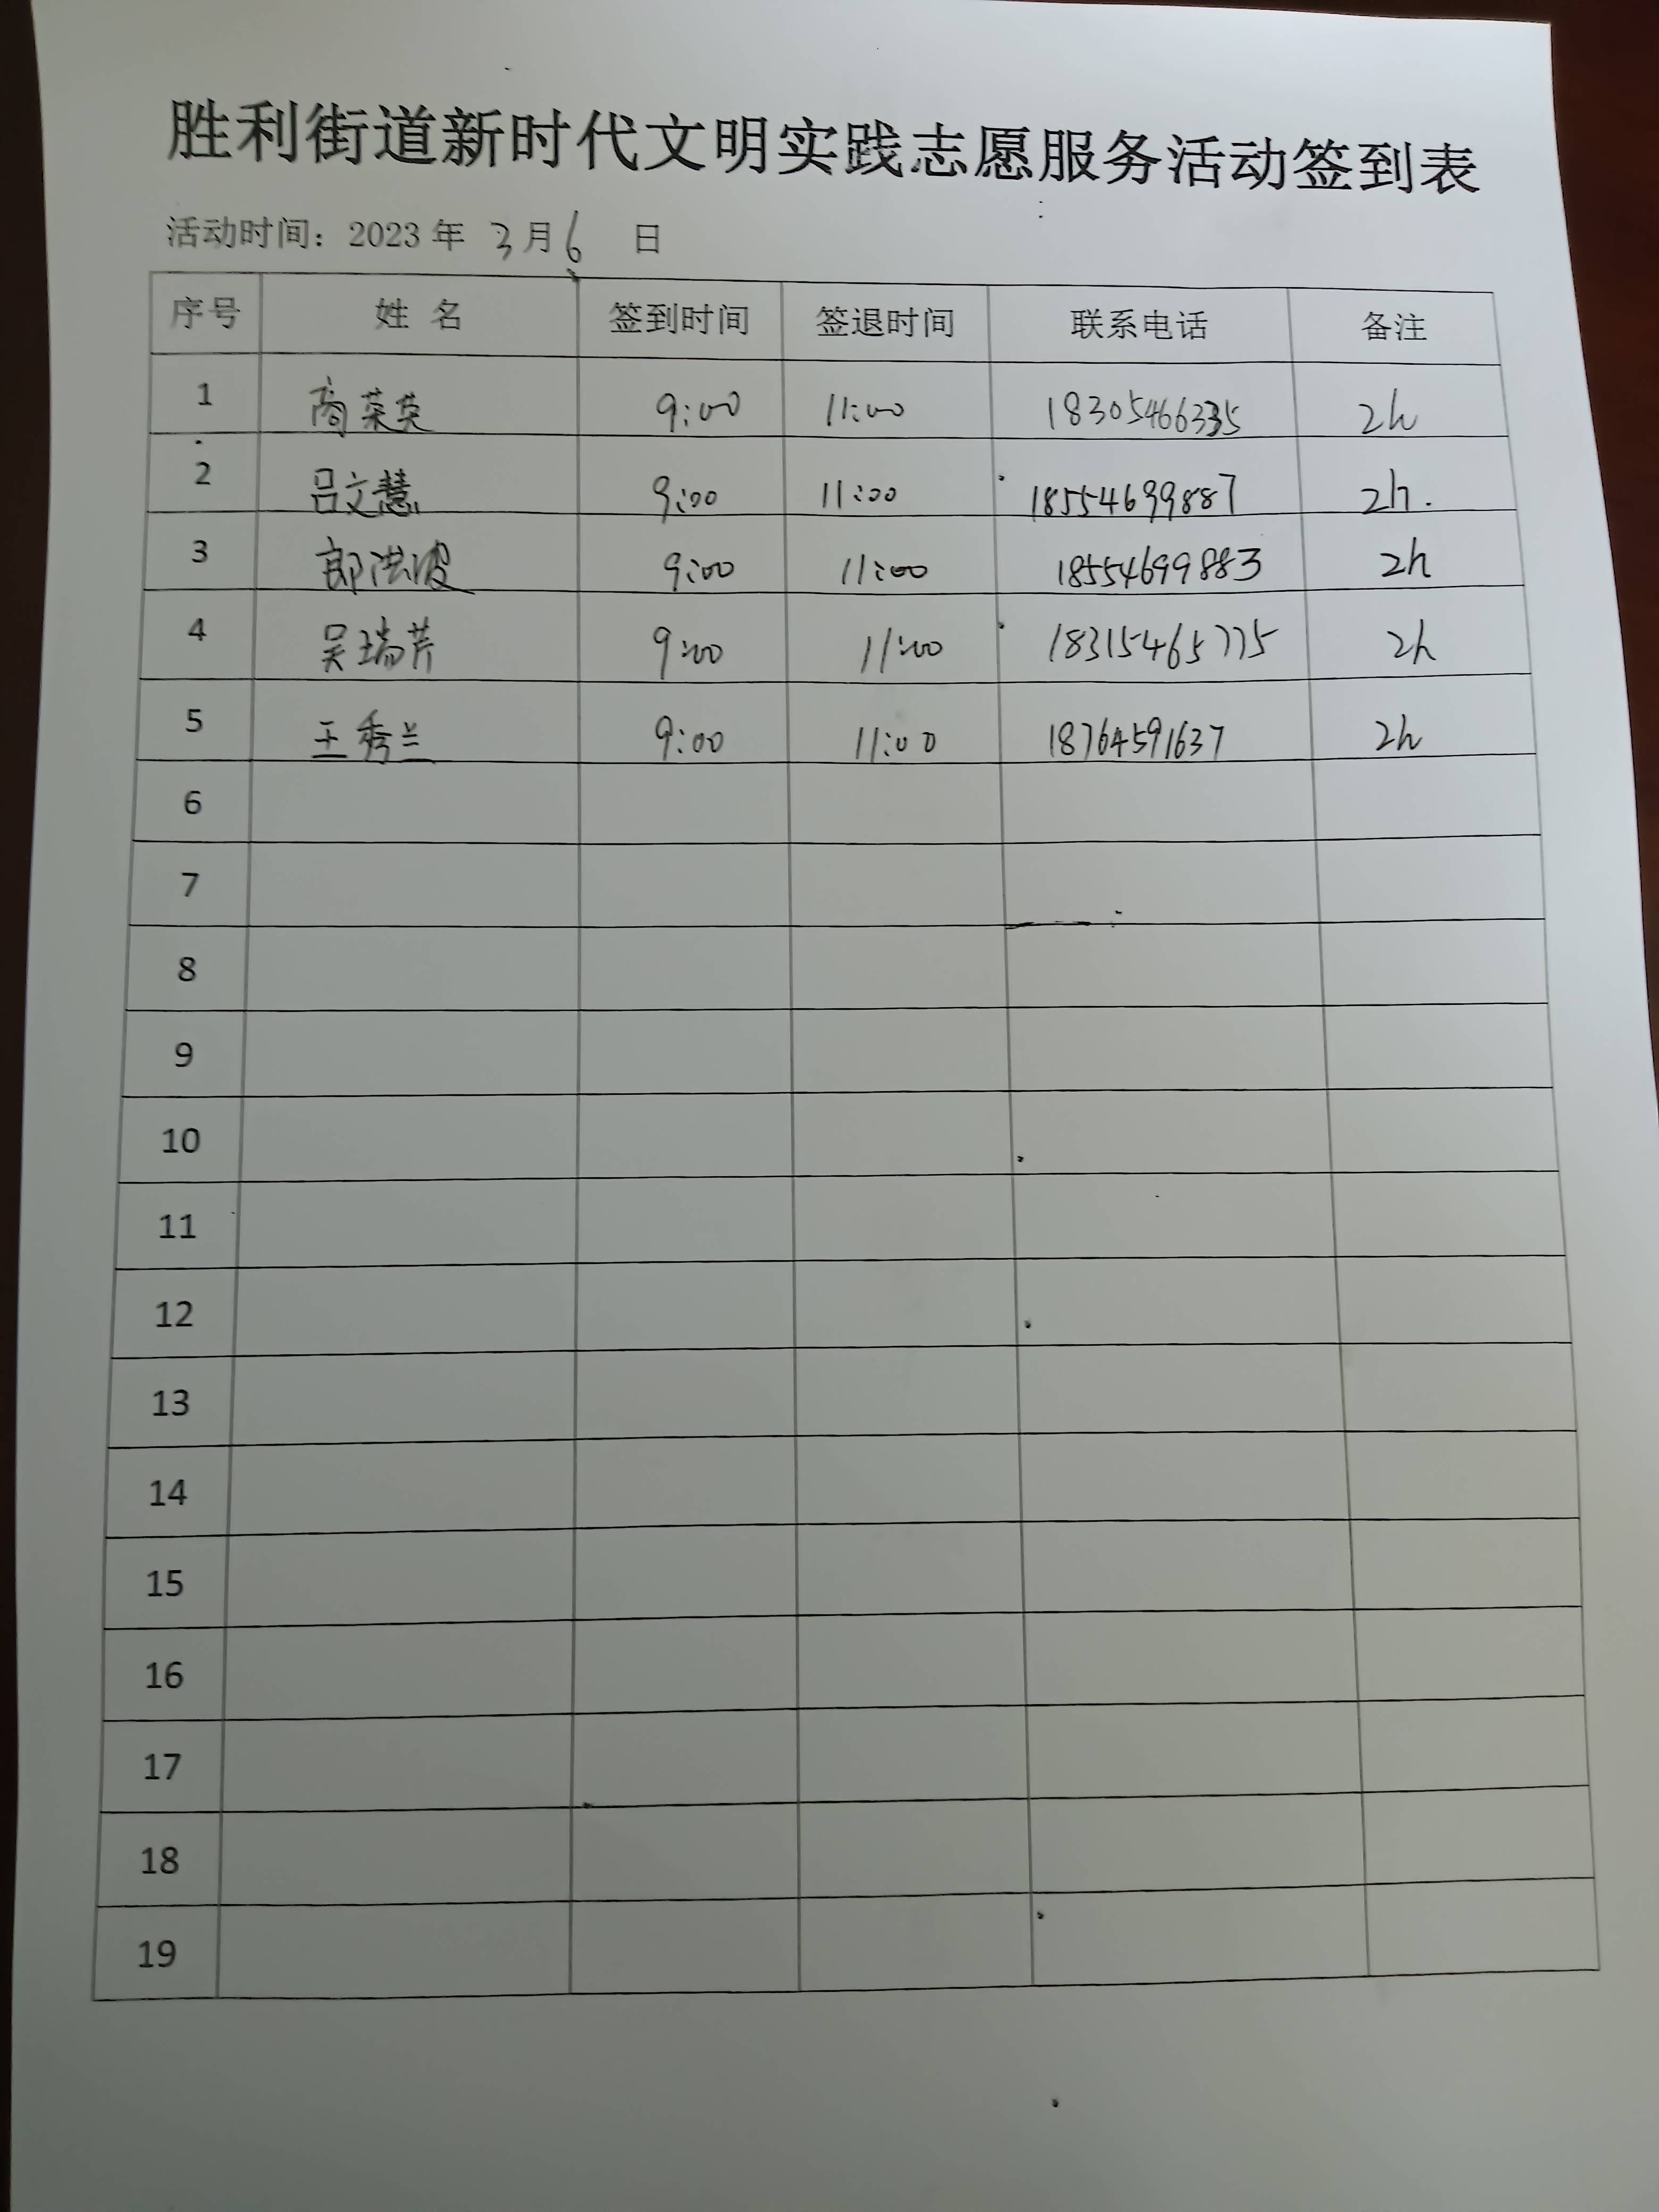 胜利街道新时代文明实践志愿服务活动签到表
活动时间：2023 年 3 月 6 日
序号 姓 名 签到时间 签退时间 联系电话 备注
1 商菜英 9:00 11:00 18305466335 2h
2 吕文慧 9:00 11:00 18554699887 2h.
3 郎洪波 9:00 11:00 18554699883 2h
4 吴瑞芹 9:00 11:00 18315465775 2h
5 王秀兰 9:00 11:00 18764591637 2h
6
7
8
9
10
11
12
13
14
15
16
17
18
19